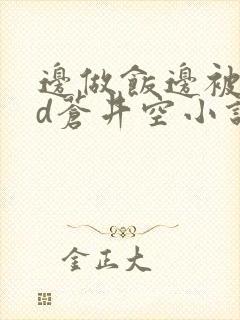 邊做飯邊被
d蒼井空小說
金正大